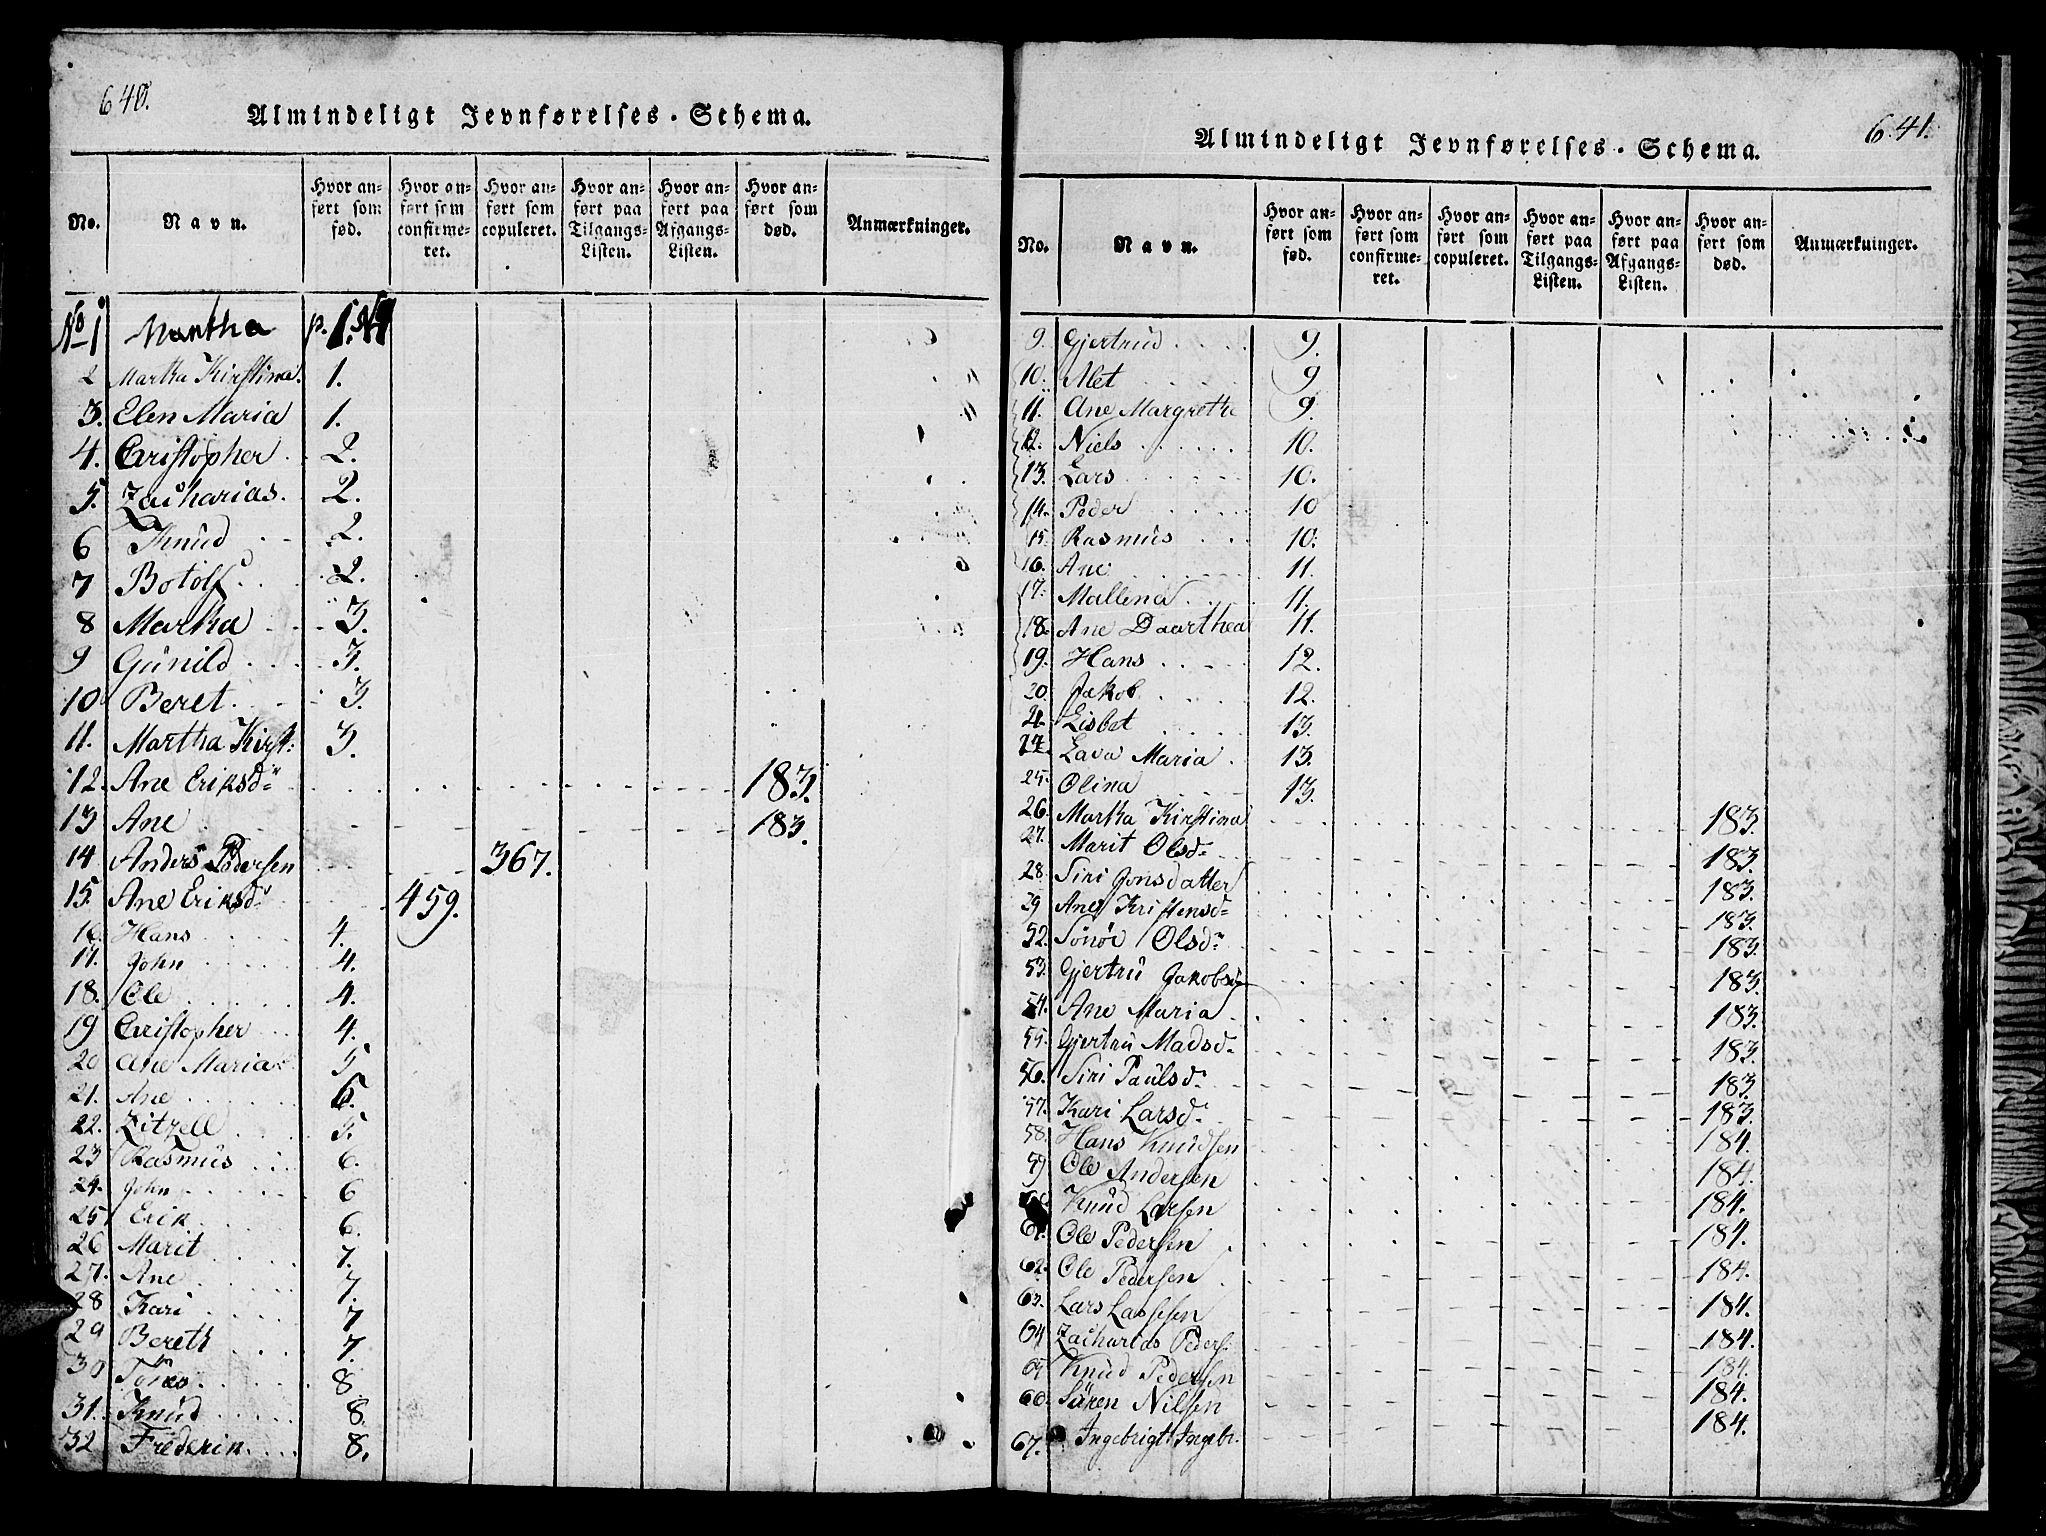 640.
Almindeligt Jevnførelses-Schema.
No. Navn. Hvor anført som fød. Hvor anført som confirmeret. Hvor anført som copuleret. Hvor anført paa Tilgangs-Listen. Hvor anført paa Afgangs-Listen. Hvor anført som død. Anmærkninger.
No 1 Martha p. 1.
2 Martha Kirstina. 1.
3. Elen Maria 1.
4. Cristopher 2.
5. Zacharias. 2.
6 Knud 2.
7 Botolf 2.
8 Martha 3.
9 Gunild 3.
10 Beret 3.
11. Martha Kirst: 3.
12. Ane Eriksd 183.
13 Ane 183.
14 Anders Pedersen 367.
15. Ane Eriksd 459.
16. Hans 4.
17. John 4.
18. Ole 4.
19 Cristopher 4.
20 Ane Maria 5
21. Ane 5.
22. Zitzell 5.
23 Rasmus 6.
24. John 6
25 Erik 6.
26 Marit 7.
27. Ane 7.
28 Kari 7
29 Bereth 7.
30 8.
31. Knud 8.
32 Frederik 8.
641.
Almindeligt Jevnførelses-Schema.
No. Navn. Hvor anført som fød. Hvor anført som confirmeret. Hvor anført som copuleret. Hvor anført paa Tilgangs-Listen. Hvor anført paa Afgangs-Listen. Hvor anført som død. Anmærkninger.
9. Gjertrud 9.
10. Met 9
11. Ane Margrethe 9.
12. Niels 10.
13. Lars 10.
14. Peder 10
15. Rasmus 10.
16. Ane 11.
17. Mallena 11.
18. Ane Daarthea 11.
19. Hans 12.
20. Jakob 12.
21. Lisbet 13.
Lava Maria 13.
25. Olina 13.
26. Martha Kirstina 183.
27. Marit Olsd 183.
28. Siri Jonsdatter 183.
29 Ane Kristensd 183.
52. Olsd 183.
53. Gjertru Jakobsd 183.
54. Ane Maria 183.
55. Gjertru Madsd 183.
56. Siri Paulsd 183.
57. Kari Larsd 183.
58. Hans Knudsen 184.
59 Ole Andersen 184.
Knud Larsen 184.
61. Ole Pedersen 184.
62. Ole Pedersen 184.
63. Lars Lassesen 184.
64 Zacharias Peders. 184.
65 Knud Pedersen 184.
66. Sören Nilsen 184.
67. Ingebrigt Ingebr. 184.